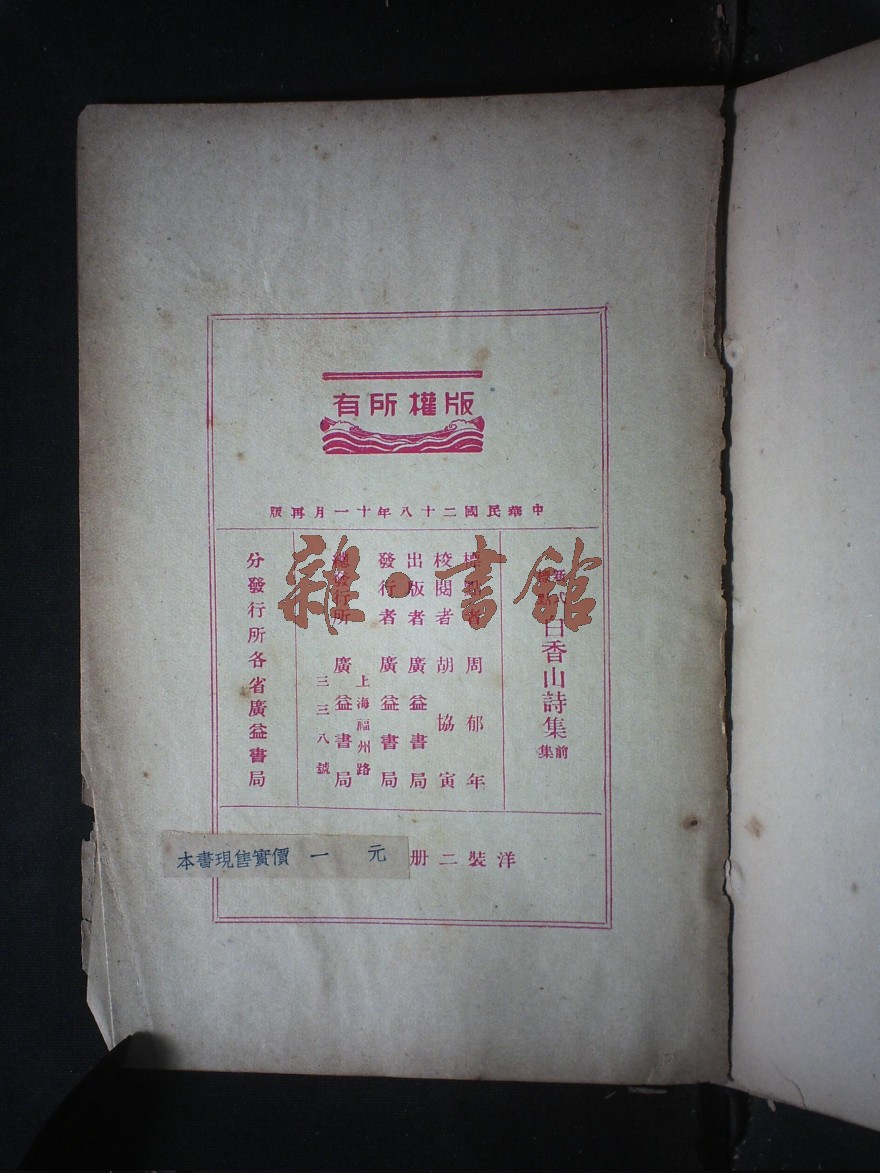 版權所有
中華民國二十八年十一月再版
新式標點白香山詩集前集
標點者 周郁年
校閱者 胡協寅
出版者 廣益書局
發行者 廣益書局
總發行所 廣益書局
上海福州路
三三八號
分發行所各省廣益書局
洋裝二册
本書現售實價 一 元
雜·書館